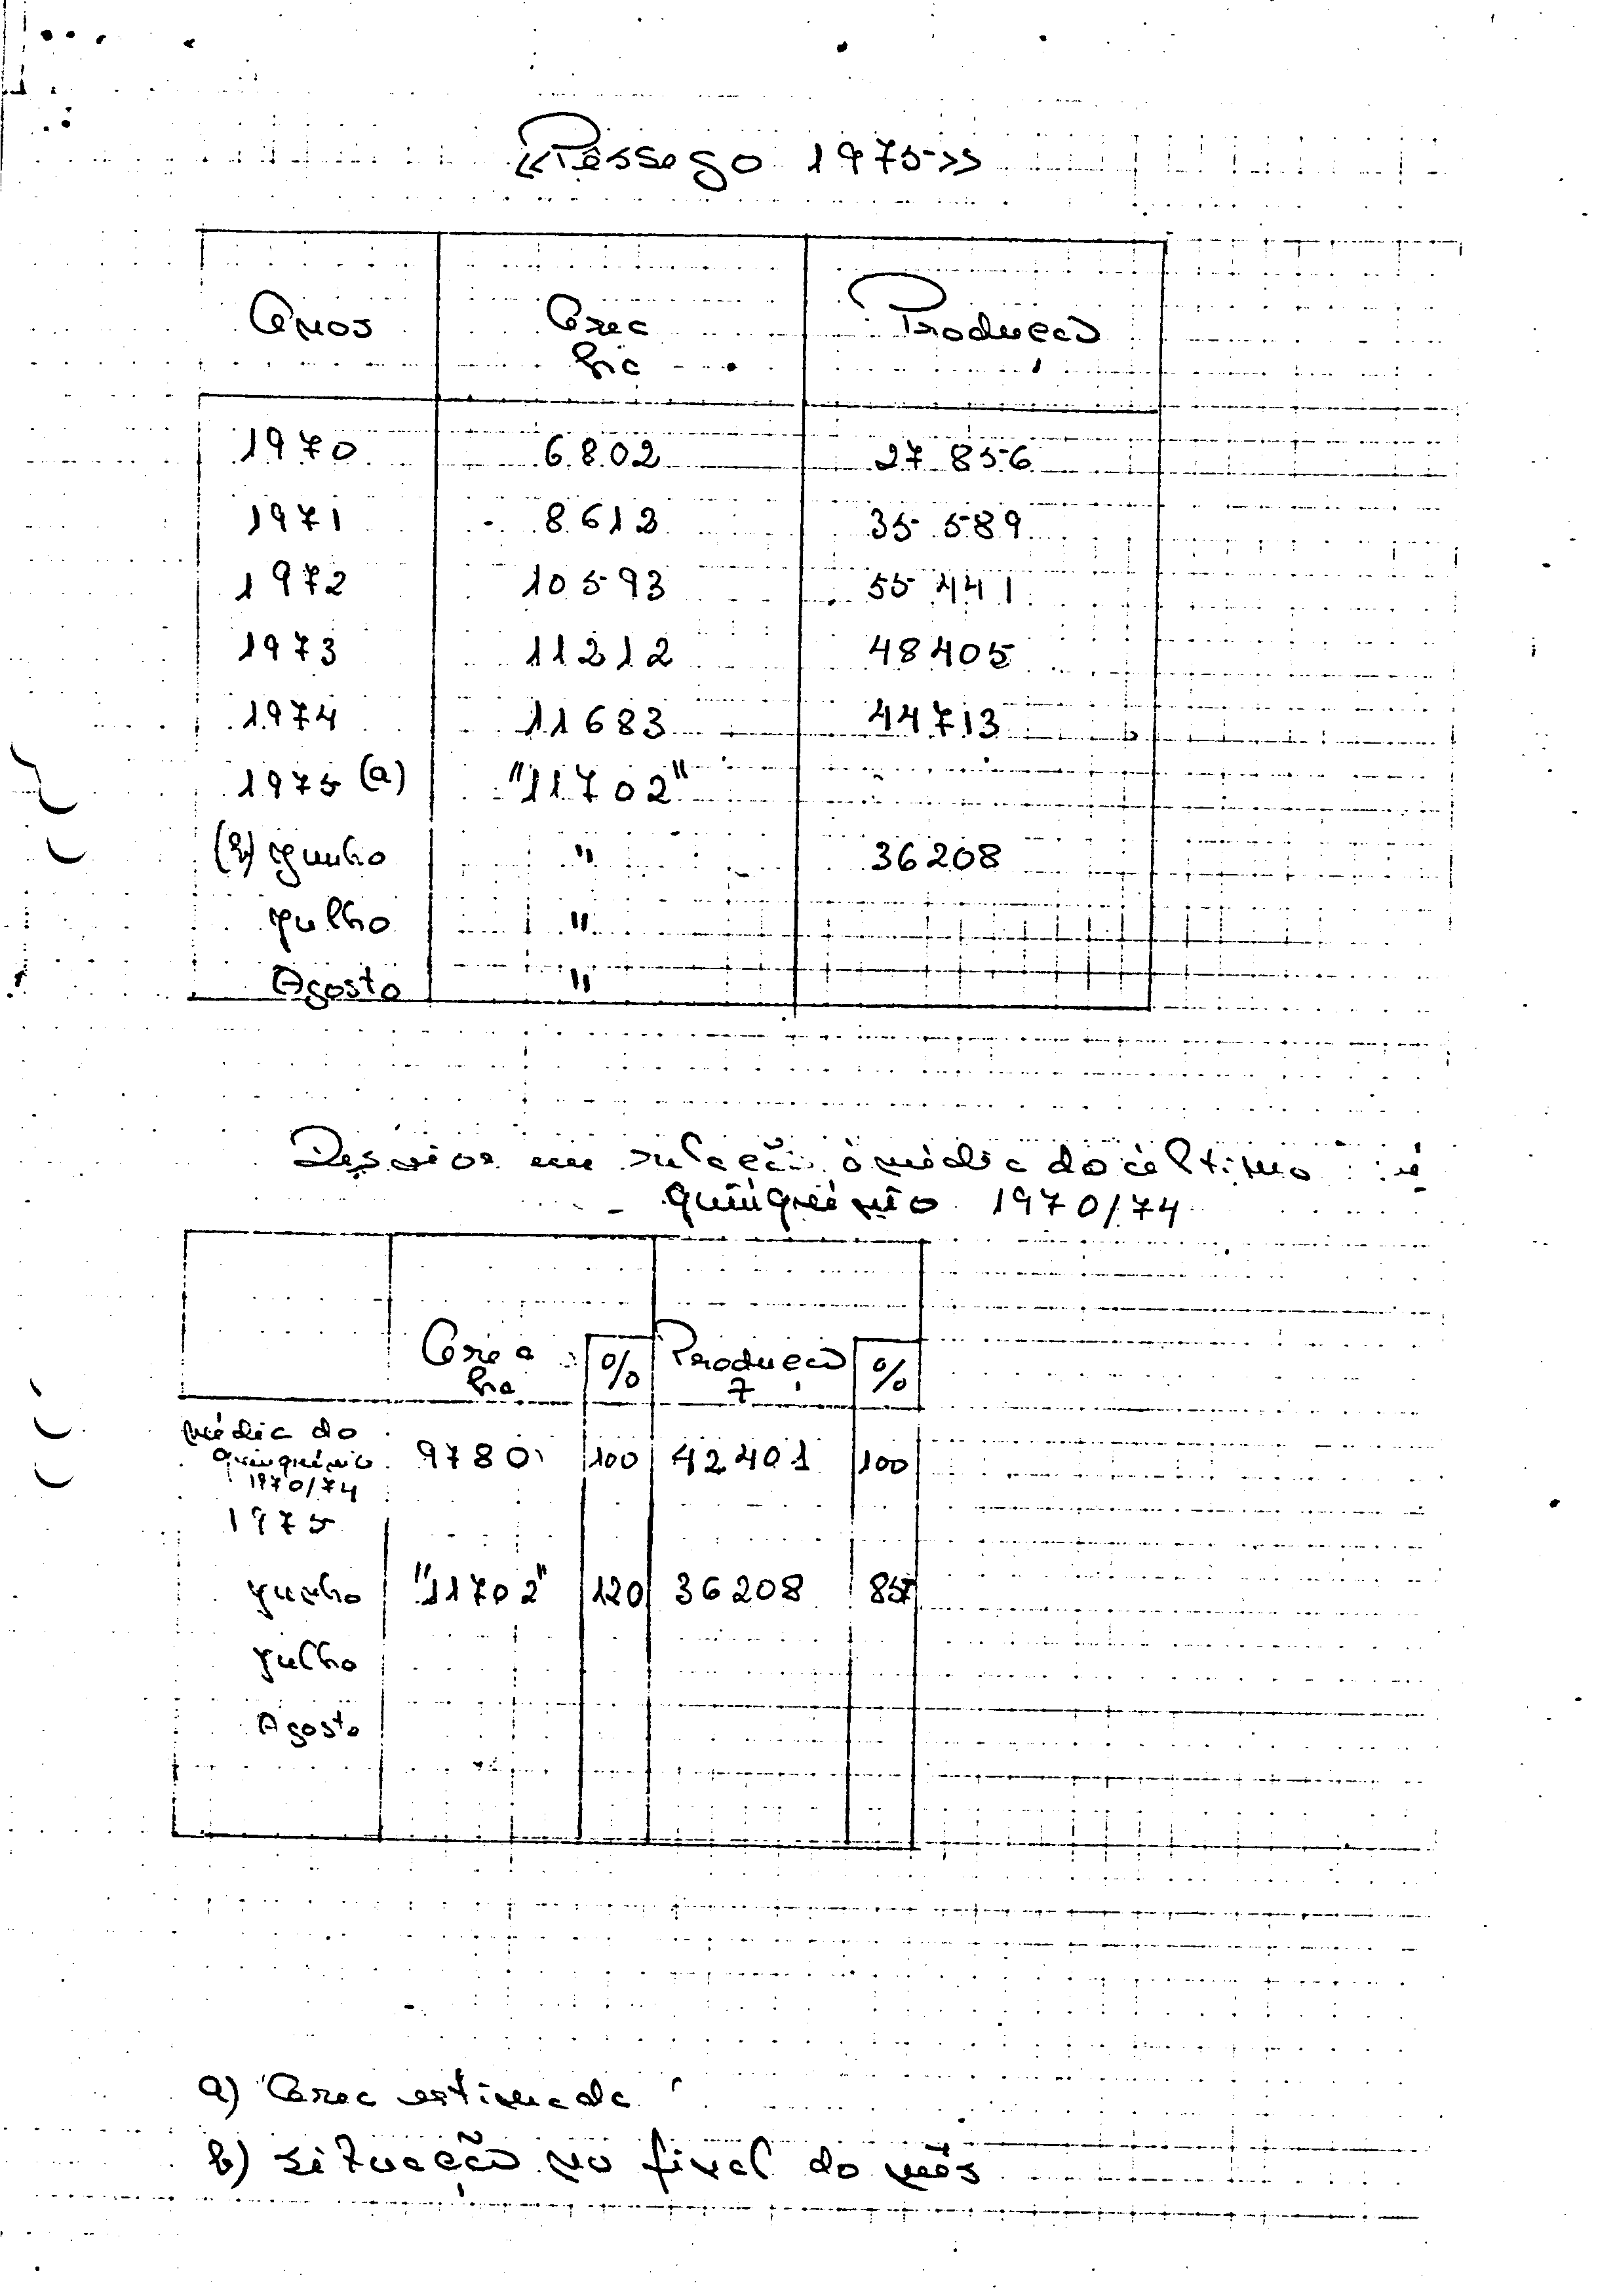 «Pêssego 1975»
Anos Area Produção
ha
1970 6802 27 856
1971 8612 35 589
1972 10593 55 441
1973 11212 48405
1974 11683 44713
1975 (a) "11702"
(b) Junho " 36208
Julho "
Agosto "
Desvios em relação à média do último
quinquénio 1970/74
Area % Produção %
ha T
média do
quinquénio 9780 100 42401 100
1970/74
1975
Junho "11702" 120 36208 85
Julho
Agosto
a) Area estimada
b) situação no final do mês